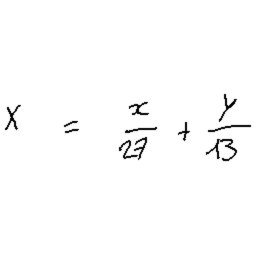 X = x/27 + y/13